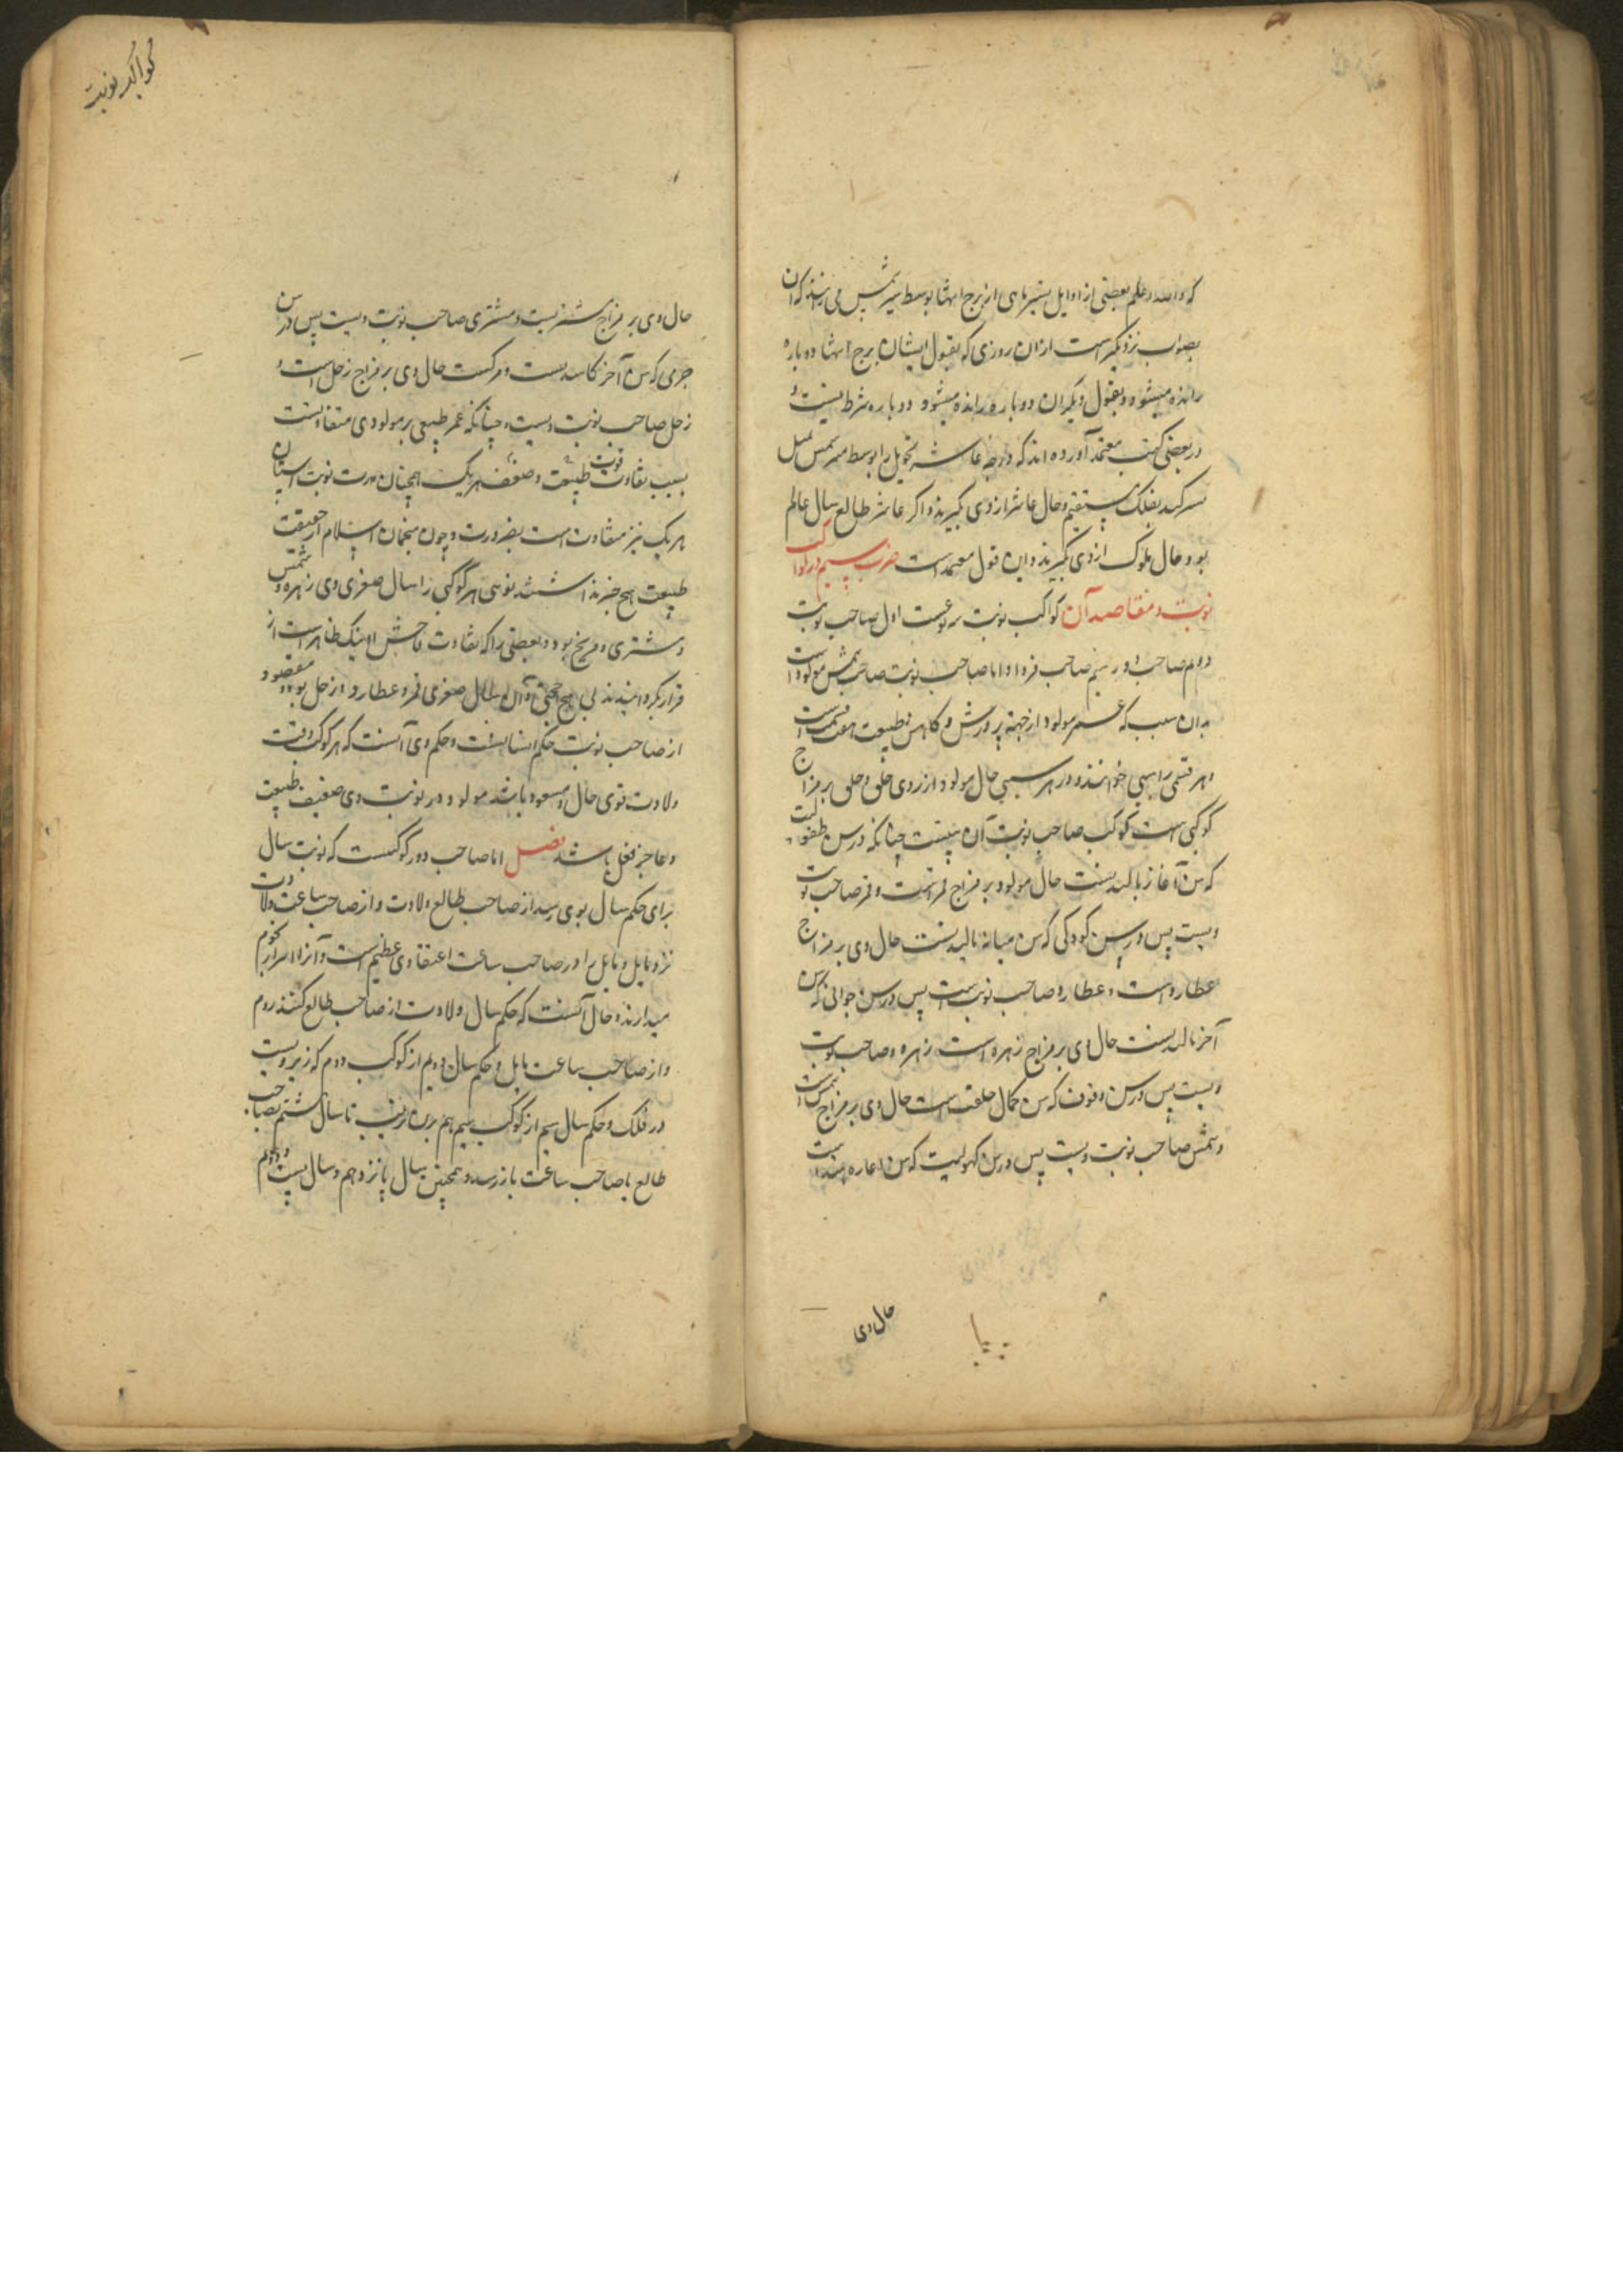 که والله اعلم بعضی از اوایل بسیر ماهی از برج انتها بوسط سیر شمس می رانند که آن
بصواب نزدیکتر است از آن روزی که بقول ایشان برج انتها دوباره
رانده میشود و بقول دیگران دوباره رانده میشود و دوباره شرط نیست و
در بعضی کتب معتمد آورده اند که درجه عاشر تحویل را بوسط سیر شمس
بفلک مستقیم و حال عاشر از وی گیرند و اگر عاشر طالع سال عالم
بود حال ملوک از وی گیرند و این قول معتمد است ضرب سیم در کواکب
نوبت و مقاصد آن کواکب نوبت سه نوعست اول صاحب نوبت
دوم صاحب دور سیم صاحب فردار اما صاحب نوبت صاحب مولود است
بدان سبب که عمر مولود از جهة پرورش و کاهش طبیعت هفت قسمت است
و هر قسمی را سنی خوانند و در هر سنی حال مولود از روی خلق و خلق بر مزاج
کوکبی است که کوکب صاحب نوبت آن سنست چنانکه در سن طفولیت
که سن آغاز بالیدنست حال مولود بر مزاج قمر است و قمر صاحب نوبت
ویست پس در سن کودکی که سن میانه بالیدنست حال وی بر مزاج
عطارد است و عطارد صاحب نوبت ویست پس در سن جوانی که سن
آخر بالیدنست حال وی بر مزاج زهره است زهره صاحب نوبت
ویست پس در سن وقوف که سن کمال خلقت است حال وی بر مزاج شمس است
و شمس صاحب نوبت ویست پس در سن کهولیت که سن است
حال وی
کواکب نوبت
حال وی بر مزاج مشتریست و مشتری صاحب نوبت ویست پس در سن
که سن آخر کاستنست و مرگست حال وی بر مزاج زحل است و
زحل صاحب نوبت ویست و چنانکه عمر طبیعی هر مولودی متفاوتست
بسبب تفاوت قوت طبیعت و ضعف هر یک همچنان مدت نوبت اسنان
هر یک نیز متفاوت است بضرورت و چون منجمان اسلام از حقیقت
طبیعت هیچ خبر نداشتند نوبت هر کوکبی را سال صغری وی زهره و شمس
و مشتری و مریخ بود و بعضی را که تفاوت فاحش اینک ظاهر است از
قرار بگردانیدند بی هیچ حجتی و آن سال صغری قمر و عطارد و زحل بود و مقصود
از صاحب نوبت حکم اسنانست و حکم وی آنست که هر کوکب وقت
ولادت قوی حال و مسعود باشد مولود در نوبت وی ضعیف طبیعت
و عاجز فعل باشد فصل اما صاحب دور کوکبیست که نوبت سال
برای حکم سال بوی رسد از صاحب طالع ولادت و از صاحب ساعت ولادت
نزد بابل و بابل را در صاحب ساعت اعتقادی عظیم است و آنرا اسرار نجوم
میدارند و حال آنست که حکم سال ولادت از صاحب طالع کنند روم
و از صاحب ساعت بابل و حکم سال دویم از کوکب دوم که زیر ویست
در فلک و حکم سال سیم از کوکب سیم هم برین ترتیب تا سال هشتم بصاحب
طالع یا صاحب ساعت باز رسد و همچنین سال پانزدهم و سال بیست و دوم